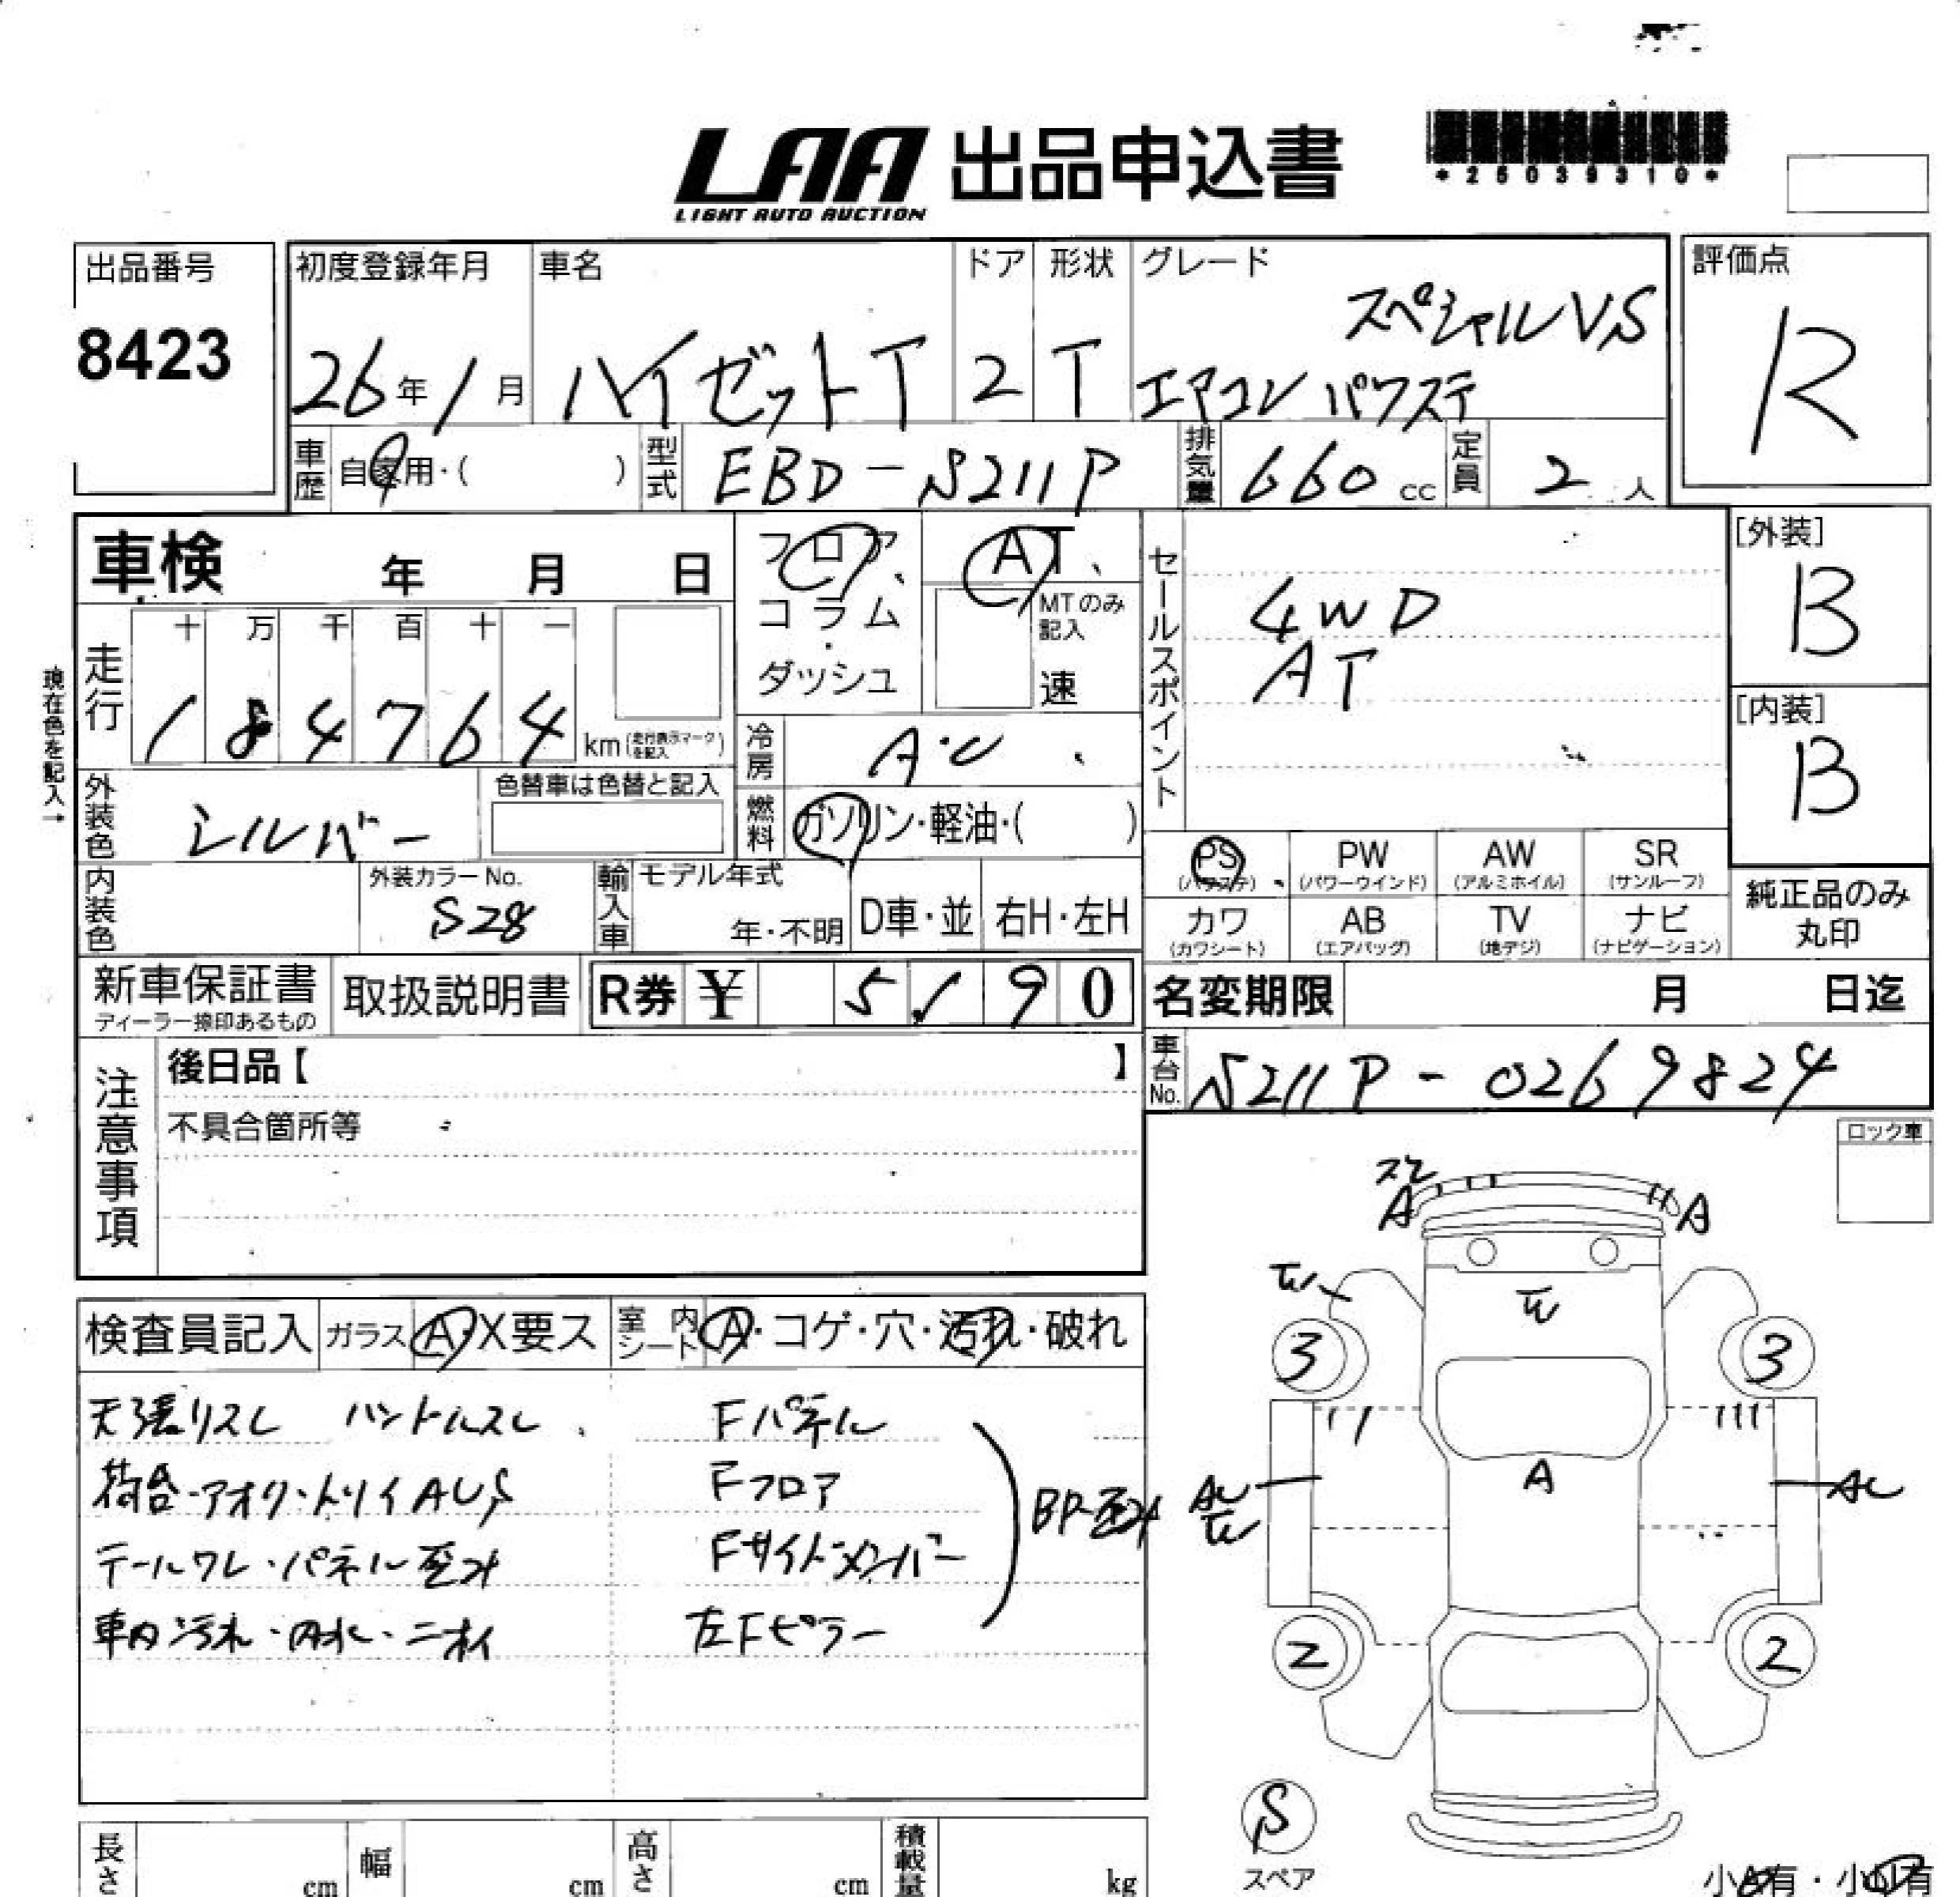 LAA 出品申込書
LIGHT AUTO AUCTION
*25039310*
出品番号
8423
初度登録年月
26年1月
車名
ハイゼットT
ドア
2
形状
T
グレード
スペシャルVS
エアコン パワステ
評価点
R
車歴
自家用・( )
型式
EBD-S211P
排気量
660 cc
定員
2 人
車検 年 月 日
フロア、
コラム
・
ダッシュ
AT、
MTのみ
記入
速
セールスポイント
4WD
AT
[外装]
B
[内装]
B
現在色を記入→
走行
十 万 千 百 十 一
1 8 4 7 6 4 km (走行表示マークを記入)
冷房
A・C
外装色
シルバー
色替車は色替と記入
燃料
ガソリン・軽油・( )
内装色
外装カラーNo.
S28
輸入車
モデル年式
年・不明
D車・並
右H・左H
PS
(パワステ)
PW
(パワーウインド)
AW
(アルミホイル)
SR
(サンルーフ)
カワ
(カワシート)
AB
(エアバッグ)
TV
(地デジ)
ナビ
(ナビゲーション)
純正品のみ
丸印
新車保証書
ディーラー捺印あるもの
取扱説明書
R券 ¥ 5,190
名変期限 月 日迄
車台No.
S211P-0269824
注意事項
後日品【 】
不具合箇所等
ロック車
検査員記入
ガラス A・X要ス
室内シート A・コゲ・穴・汚れ・破れ
天張リスレ ハンドルスレ
Fパネル
荷台・アオリ・トリイAUS
Fフロア
テールワレ・パネル歪み
Fサイドメンバー
車内汚れ・内水・ニオイ
左Fピラー
BP・歪み
A
A
3
3
A
AU
2
2
S
スペア
長さ cm
幅 cm
高さ cm
積載量 kg